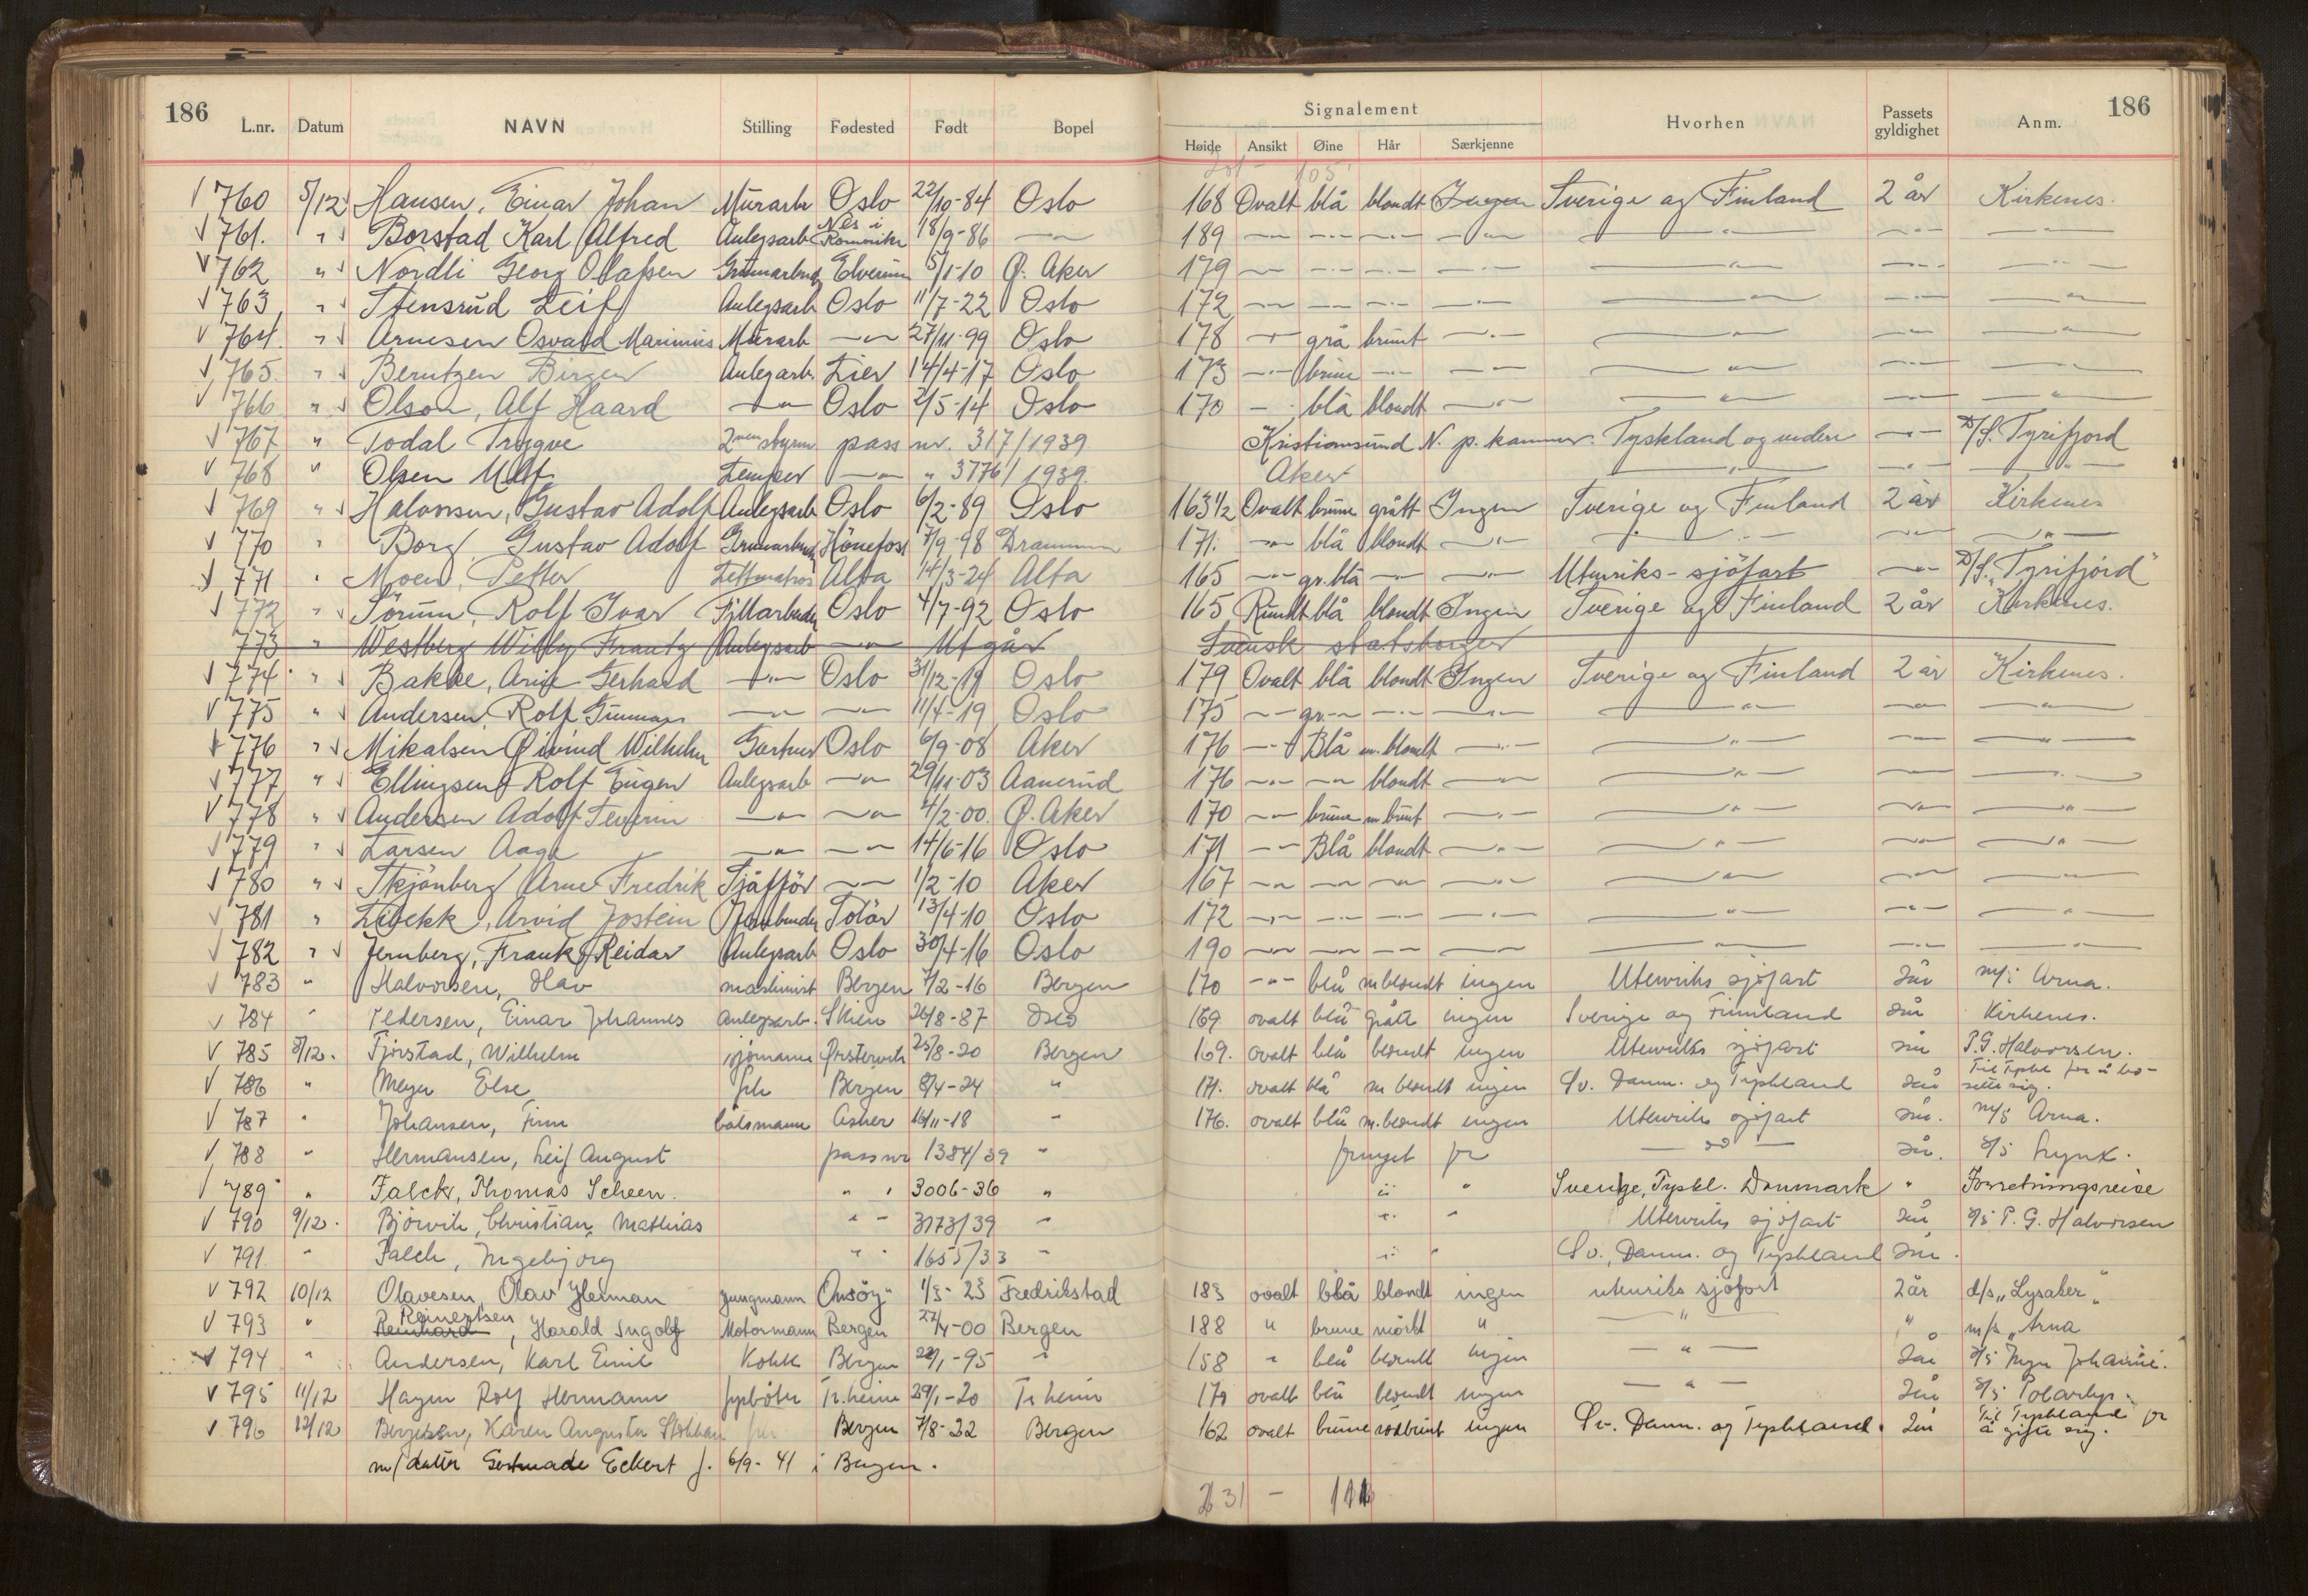 186 Signalement 186
L.nr. Datum NAVN Stilling Fødested Født Bopel Høide Ansikt Øine Hår Særkjenne Hvorhen Passets gyldighet Anm.
105
V 760 5/12 Hansen, Einar Johan Murarb Oslo 22/10-84 Oslo 168 Ovalt blå blondt Ingen Sverige og Finland 2 år Kirkenes.
V 761. " Borstad Karl Alfred Anlegsarb Nes i Romerike 18/9-86 -"- 189 -"- -"- -"- -"- -"- -"- -"-
V 762 " Nordli Georg Olafsen Grunarbeid Elverum 5/1-10 Ø. Aker 179 -"- -"- -"- -"- -"- -"- -"-
V 763 " Stensrud Leif Anlegsarb Oslo 11/7-22 Oslo 172 -"- -"- -"- -"- -"- -"- -"-
V 764. " Arnesen Osvald Marinius Murarb -"- 27/11-99 Oslo 178 -"- grå brunt -"- -"- -"- -"-
V 765. " Berntzen Birger Anlegarb. Lier 14/4-17 Oslo 173 -"- brune -"- -"- -"- -"- -"-
V 766 " Olson, Alf Haard -"- Oslo 2/5-14 Oslo 170 -"- blå blondt -"- -"- -"- -"-
V 767 " Todal Trygve 2nen styrm pass nr. 317/1939 Kristiansund N. p.kammer. Tyskland og videre -"- D/S. Tyrifjord
V 768 " Olsen Ulf Lemper -"- " 3776/1939. Aker -"- -"- -"-
V 769 " Halvorsen, Gustav Adolf Anlegsarb Oslo 6/2-89 Oslo 163 1/2 Ovalt brune grått Ingen Sverige og Finland 2 år Kirkenes
V 770 " Borg Gustav Adolf Grunarbeid Hönefoss 7/9-98 Drammen 171. -"- blå blondt -"- -"- -"- -"-
V 771 " Moen, Petter Lettmatros Alta 14/3-24 Alta 165 -"- gr.blå -"- -"- Utenriks-sjöfart -"- D/S. "Tyrifjord"
V 772 " Sörum, Rolf Ivar Fjellarbeider Oslo 4/7-92 Oslo 165 Rundt blå blondt Ingen Sverige og Finland 2 år Kirkenes.
773 " Westberg Willy Frantz Anlegsarb -"- Utgår Svensk statsborger
V 774 " Bakke, Arne Gerhard -"- Oslo 31/12-19 Oslo 179 Ovalt blå blondt Ingen Sverige og Finland 2 år Kirkenes.
V 775 " Andersen Rolf Gunnar -"- -"- 11/4-19 Oslo 175 -"- gr.-"- -"- -"- -"- -"- -"-
V 776 " Mikalsen Øivind Wilhelm Gartner Oslo 6/9-08 Aker 176 -"- Blå m.blondt -"- -"- -"- -"-
V 777 " Ellingsen Rolf Eugen Anlegsarb -"- 29/11-03 Aanerud 176 -"- -"- blondt -"- -"- -"- -"-
V 778 " Andersen Adolf Severin -"- -"- 4/2-00. Ø. Aker 170 -"- brune m brunt -"- -"- -"- -"-
V 779 " Larsen Aage -"- -"- 14/6-16 Oslo 171 -"- Blå blondt -"- -"- -"- -"-
V 780 " Skjönberg Arne Fredrik Sjåfför -"- 1/2-10 Aker 167 -"- -"- -"- -"- -"- -"- -"-
V 781 " Arvid Jostein Jernbinder Solör 13/4-10 Oslo 172 -"- -"- -"- -"- -"- -"- -"-
V 782 " Jernberg, Frank Reidar Anlegsarb Oslo 30/4-16 Oslo 190 -"- -"- -"- -"- -"- -"- -"-
V 783 " Halvorsen, Olav maskinist Bergen 7/2-16 Bergen 170 -"- blå m blondt ingen Utenriks sjøfart 2år m/s Arna.
V 784 " Pedersen, Einar Johannes anlegsarb. Skien 26/8-87 Oslo 169 ovalt blå grått ingen Sverige og Finnland 2år Kirkenes.
V 785 8/12. Fjørstad, Wilhelm sjömann Ørstervik 25/8-20 Bergen 169. ovalt blå blondt ingen Utenriks sjøfart 2år P.G. Halvorsen.
V 786 " Meyer Else frk Bergen 8/4-24 " 171. ovalt blå m blondt ingen Sv. Danm. og Tyskland 2år Til Tyskl for å bo- sette sig.
V 787 " Johansen, Finn båtsmann Asker 16/11-18 " 176. ovalt blå m.blondt ingen Utenriks sjøfart 2år. m/s Arna.
V 788 " Hermansen, Leif August passnr 1384/39 " fornyet for -"- 2år. s/s Lynx.
V 789 " Falck, Thomas Scheen. " " 3006-36 " " " Sverige, Tyskl. Danmark " Forretningsreise
V 790 9/12. Bjørvik, Christian Mathias " " 3173/39 " " " Utenriks sjøfart 2år s/s P.G. Halvorsen
V 791 " Falch, Ingebjørg " " 1655/33 " " Sv., Danm. og Tyskland 2år.
V 792 10/12 Olavesen, Olav Herman jungmann Onsöy 1/3-23 Fredrikstad 183 ovalt blå blondt ingen utenriks sjøfart 2år d/s „Lysaker"
V 793 " Reinhard Reinertsen, Harald Ingolf Motormann Bergen 27/4-00 Bergen 188 " brune mörkt " -"- " m/s „Arna
V 794 " Andersen, Karl Emil Kokk Bergen 22/1-95 " 158 " blå blondt ingen -"- 2år s/s Inger Johanne.
V 795 11/12 Hagen Rolf Hermann fyrbøter Tr.heim 29/1-20 Tr heim 170 ovalt blå blondt ingen -"- 2år s/s Polarlys.
V 796 12/12 Karen Augusta fru Bergen 7/8-22 Bergen 162 ovalt brune rødbrunt ingen Sv. Danm. og Tyskland. 2år Til Tyskland for å gifte sig.
m/datter Gertrude Eckert f. 6/9-41 i Bergen.
231 - 111